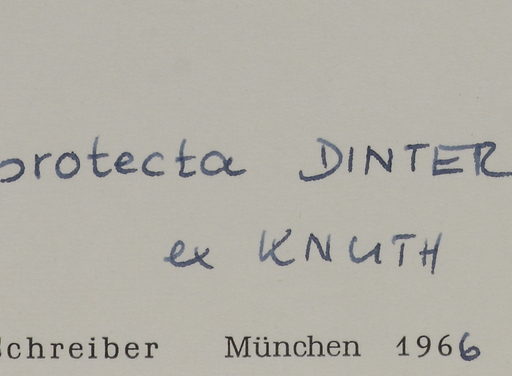 protecta DINTER
ex KNUTH
Schreiber München 1966